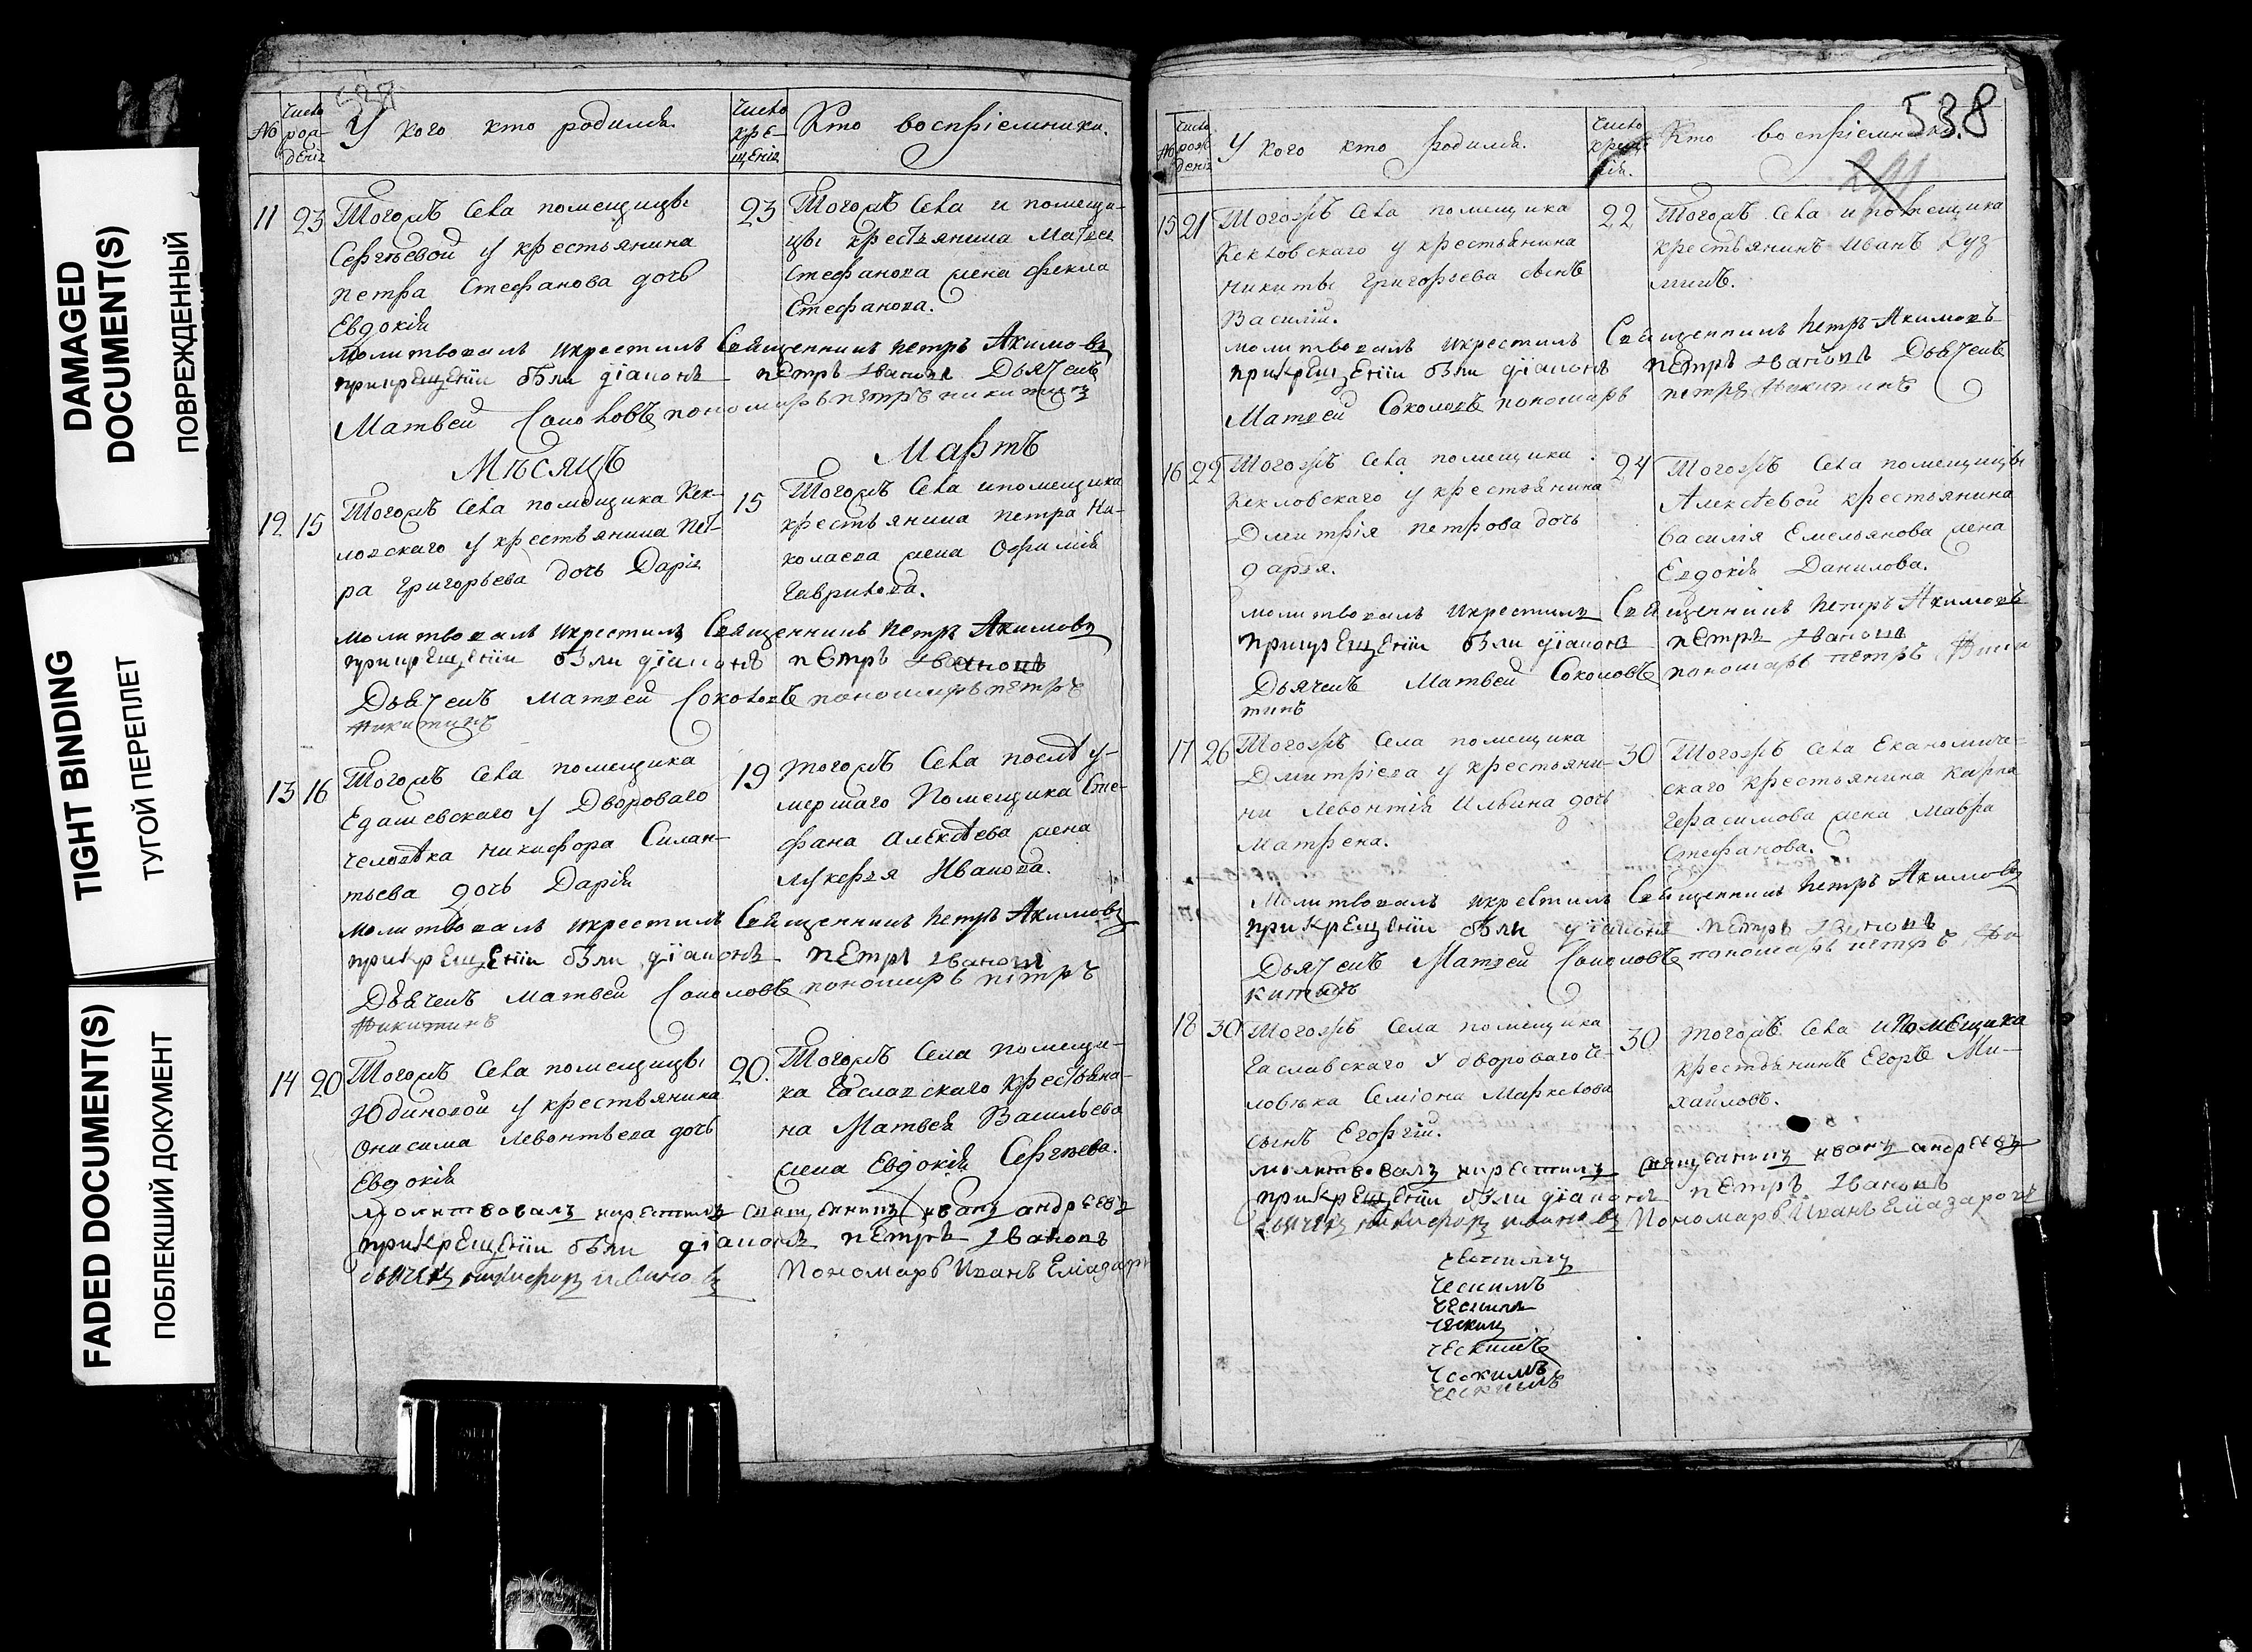 DAMAGED
DOCUMENT(S)
ПОВРЕЖДЕННЫЙ
TIGHT BINDING
ТУГОЙ ПЕРЕПЛЕТ
FADED DOCUMENT(S)
ПОБЛЕКШИЙ ДОКУМЕНТ
№
У кого кто родился.
Кто воспрiемники.
11 23 Тогожъ села помещицы
Сергѣевой у крестьянина
петра Стефанова дочь
Евдокiя
23 Тогожъ села и помещи-
цы крестьянина Матвея
Стефанова жена Фекла
Стефанова.
молитвовалъ и крестилъ Священникъ петръ Акимовъ
прикрещенiи были дiаконъ петръ Ивановъ Дьячекъ
Матвей Соколовъ пономарь петръ никитинъ
Мѣсяцъ Мартъ
12 15 Тогожъ села помещика Кек-
ловскаго у крестьянина пет-
ра григорьева дочь Дарiя
15 Тогожъ села и помещика
крестьянина петра Ни-
колаева жена Офимiя
Гаврилова.
молитвовалъ и крестилъ Священникъ петръ Акимовъ
прикрещенiи были дiаконъ петръ Ивановъ
Дьячекъ Матвей Соколовъ пономарь петръ
Никитинъ
13 16 Тогожъ села помещика
Едашевскаго у Двороваго
человѣка никифора Силан-
тьева дочь Дарiя
19 Тогожъ села послѣ у-
мершаго Помещика Сте-
фана алексѣева жена
лукерья Иванова.
молитвовалъ и крестилъ Священникъ петръ Акимовъ
прикрещенiи были дiаконъ петръ Ивановъ
Дьячекъ Матвей Соколовъ пономарь петръ
Никитинъ
14 20 Тогожъ села помещицы
Юдиновой у крестьянина
Онисима левонтьева дочь
Евдокiя
20. Тогожъ села помещи-
ка Еаславскаго крестьяни-
на Матвея Васильева
жена Евдокiя Сергѣева.
молитвовалъ и крестилъ священникъ иванъ андреевъ
прикрещенiи были дiаконъ петръ Ивановъ
дьячекъ никифоръ ивановъ Пономарь Иванъ
538
№
У кого кто родился.
Кто воспрiемники.
15 21 Тогожъ села помещика
Кекловскаго у крестьянина
никиты григорьева сынъ
Василiй.
22 Тогожъ села и помещика
крестьянинъ Иванъ Куз
минъ.
молитвовалъ и крестилъ Священникъ петръ Акимовъ
прикрещенiи были дiаконъ петръ Ивановъ Дьячекъ
Матвей Соколовъ пономарь петръ Никитинъ
16 22 Тогожъ села помещика
Кекловскаго у крестьянина
Дмитрiя петрова дочь
дарья.
24 Тогожъ села помещицы
Алексѣевой крестьянина
Василiя Емельянова жена
Евдокiя Данилова.
молитвовалъ и крестилъ Священникъ петръ Акимовъ
прикрещенiи были дiаконъ петръ Ивановъ
Дьячекъ Матвей Соколовъ пономарь петръ Ники
тинъ
17 26 Тогожъ села помещика
Дмитрiева у крестьяни-
ни левонтiя Ильина дочь
Матрена.
30 Тогожъ села Економиче-
скаго крестьянина Карпа
герасимова жена Мавра
Стефанова.
Молитвовалъ и крестилъ Священникъ петръ Акимовъ
прикрещенiи были дiаконъ петръ Ивановъ
Дьячекъ Матвей Соколовъ пономарь петръ Ни
китинъ
18 30 Тогожъ села помещика
Еаславскаго у двороваго че-
ловѣка Семiона Маркелова
сынъ Егоргiй.
30 тогожъ села и помещика
крестьянинъ Егоръ Ми-
хайловъ.
молитвовалъ и крестилъ священникъ иванъ андреевъ
прикрещенiи были дiаконъ петръ Ивановъ
дьячекъ никифоръ ивановъ Пономарь Иванъ Елiазаровъ